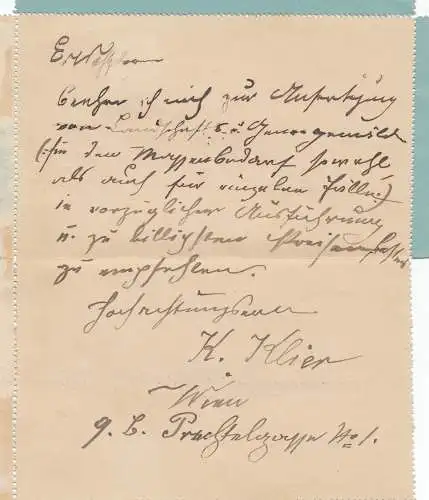 beehre ich mich zur Anfertigung
von Landschaft s. u. Genregemäld
(: für den Massenbedarf sowohl
als auch für einzelne Fälle :)
in vorzüglicher Ausführung
u. zu billigsten Preisen
zu empfehlen.
Hochachtungsvoll
K. Klier
Wien
9. B. Prechtelgasse No 1.